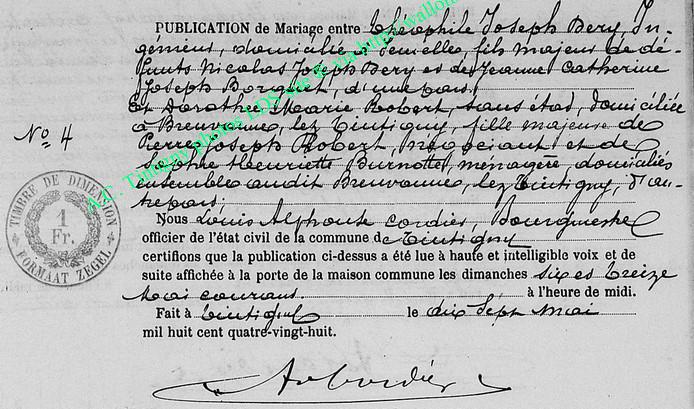 PUBLICATION de Mariage entre Théophile Joseph Bery, In-
génieur, domicilié à Jemelles, fils majeur de dé-
funts Nicolas Joseph Bery et de Jeanne Catherine
Joseph Borquet, d'une part;
Et Dorothée Marie Robert, sans état, domiciliée
à Breuvanne, lez Tintigny, fille majeure de
Pierre Joseph Robert, négociant et de
Sophie Henriette Burnotte, ménagère, domiciliés
ensemble audit Breuvanne, lez Tintigny, d'au-
tre part;
No 4
TIMBRE DE DIMENSION
1
Fr.
FORMAAT ZEGEL
A.C. Tintigny photos LDS site & via http://wallo
Nous Louis Alphonse Cordier, Bourgmestre
officier de l'état civil de la commune de Tintigny
certifions que la publication ci-dessus a été lue à haute et intelligible voix et de
suite affichée à la porte de la maison commune les dimanches six et treize
Mai courant. à l'heure de midi.
Fait à Tintigny le dix Sept Mai
mil huit cent quatre-vingt-huit.